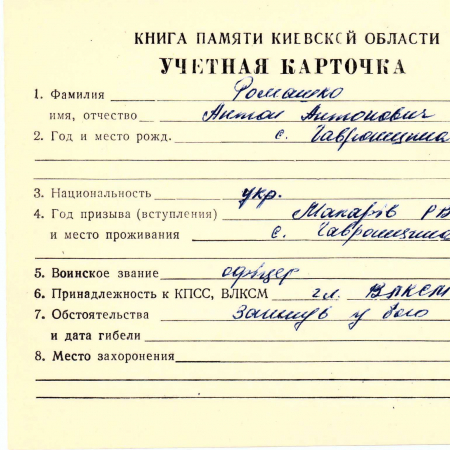 КНИГА ПАМЯТИ КИЕВСКОЙ ОБЛАСТИ
УЧЕТНАЯ КАРТОЧКА
1. Фамилия Ромашко
имя, отчество Антон Антонович
2. Год и место рожд. с. Гавронщина
3. Национальность укр.
4. Год призыва (вступления) Макарів РВ
и место проживания с. Гавронщина
5. Воинское звание офіцер
6. Принадлежность к КПСС, ВЛКСМ чл. ВЛКСМ
7. Обстоятельства загинув у бою
и дата гибели
8. Место захоронения